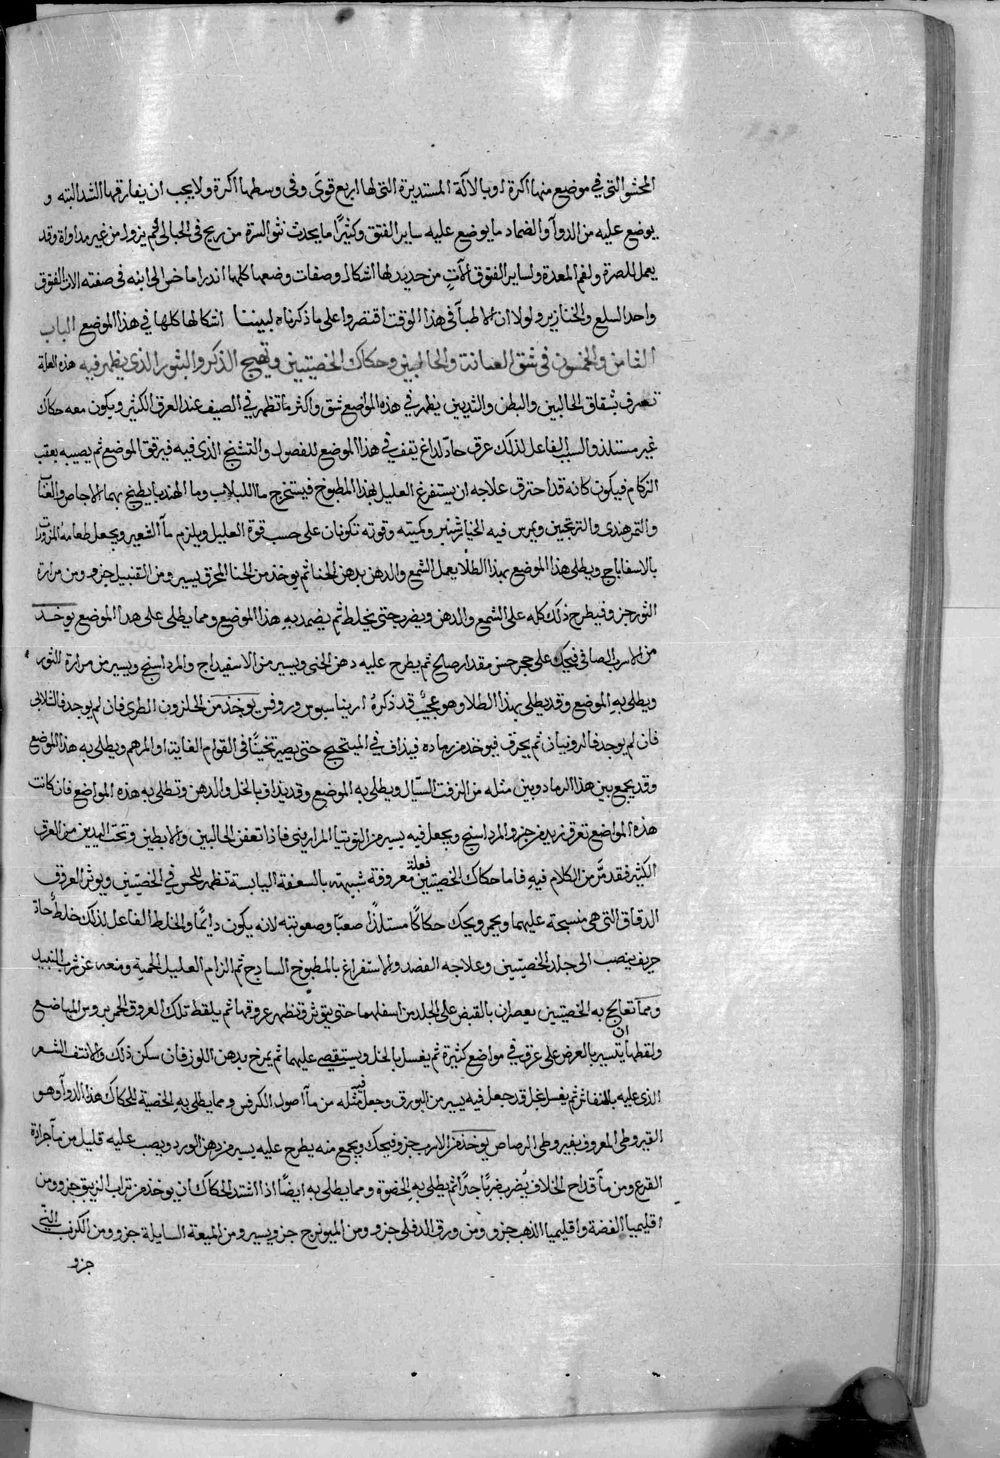 المحشو التى في موضع منها اكرة او بالالة المستديرة التى لها اربع قوى وفى وسطها اكرة ولا يجب ان يفارقها الشد البته و
يوضع عليه من الدوآ والضماد ما يوضع عليه ساير الفتق وكثيرًا ما يحدث نتو السرة من ريح فى الحبالى ثم يزول من غير مداواة وقد
يعمل للصرة ولفم المعدة ولساير الفتوق الآت من حديد لها اشكال وصفات وضعها كلها فى صفته الات الفتوق
واحد السلع والخنازير ولولا ان الاطبآ فى هذا الوقت اقتصروا على ما ذكرناه لبيننا اشكالها كلها في هذا الموضع الباب
الثامن والخمسون فى شق العانة والحالبين وحكاك الخصيتين وتهيج الذكر والبثور الذى يظهر فيه هذه العلة
تعرف بشقاق الحالبين والبطن والثديين يظهر في هذه المواضع شق واكثر ما تظهر في الصيف عند العرق الكثير ويكون معه حكاك
غير مستلذ والسبب الفاعل لذلك عرق حاد لداغ يقف في هذا الموضع للفصول والتشنج الذى فيه فيرقق الموضع ثم يصيبه بعقب
الزكام فيكون كانه قد احترق علاجه ان يستفرغ العليل بهذا المطبوخ فيستخرج ما اللبلاب وما الهندبا يطبخ بهما الاجاص والعناب
والتمر هندى والترنجبين ويمرس فيه الخيارشنبر وكميته وقوته تكونان على حسب قوة العليل ويلزم مآ الشعير ويجعل طعامه المزورات
بالاسفاناج ويطلى هذا الموضع بهذا الطلا يعمل الشمع والدهن بدهن الحنا ثم يوخذ من الحنا المحرق يسير ومن القنبيل جزو ومن مرارة
الثور جزو فيطرح ذلك كله على الشمع والدهن ويضرب حتى يختلط ثم يضمد به هذا الموضع ومما يطلى على هذا الموضع يوخذ
من الاسرب الصافى فيحك على حجر خشن مقدار صالح ثم يطرح عليه دهن الحنى ويسير من الاسفيداج والمرداسنج ويسير من مرارة الثور
ويطلى به الموضع وقد يطلى بهذا الطلا وهو عجيب قد ذكره اريناسيوس وروفس يوخذ من الحلزون الطرى فان لم يوجد
فان لم يوجد فالروبيان ثم يحرق فيوخذ من رماده فيذاف في الميبختج حتى يصير ثخينًا فى القوام الغاية او المرهم ويطلى به هذا الموضع
وقد يجمع بين هذا الرماد وبين مثله من الزفت السيال ويطلى به الموضع وقد يذاف بالخل والدهن وتطلى به هذه المواضع فان كانت
هذه المواضع تعرق زيد فى جزو المرداسنج ويجعل فيه يسير من التوتيا فاذا تعفن الحالبين والابطين وتحت اليدين من العرق
الكثير فقد مرّ من الكلام فيه فاما حكاك الخصيتين فعلة معروفة شبيهته بالسعفة اليابسة تظهر للحس فى الخصيتين ويوثر العروق
الدقاق التى هى منسبحة عليهما ويحمر ويحك حكاكًا مستلذًا صعبًا وصعوبته لانه يكون دايمًا والخلط الفاعل لذلك خلط حاد
حريف ينصب الى جلد الخصيتين وعلاجه الفصد والاستفراغ بالمطبوخ الساذج ثم الزام العليل الحمية ومنعه عن شرب النبيد
ومما تعالج به الخصيتين يعصران بالقبض على الجلد من اسفلهما حتى يتوتر وتظهر عروقها ثم يلقط تلك العروق الحمر بروس المباضع
ولقطها ان يتسير بالعرض على عرق في مواضع كثيرة ثم يغسل بالخل ويستقصى عليهما ثم يمرخ بدهن اللوز فان سكن ذلك والا نتف الشعر
الذى عليه بالمنقاش ثم يغسل بخل قد جعل فيه يسير من البورق وجعل فيه مثله من مآ اصول الكرفس ومما يطلى به الخصية للحكاك هذا الدوآ وهو
القيروطى المعروف بقيروطى الرصاص يوخذ من الاسرب جزو فيحك ويجمع منه يطرح عليه يسير من دهن الورد ويصب عليه قليل من مآ جرادة
القرع ومن مآ قداح الخلاف يُضرب ضربًا جيدًا ثم يطلى به الحضوة ومما يطلى به ايضًا اذا اشتد الحكاك ان يوخذ من تراب الزيبق جزو ومن
اقليميا الفضة واقليميا الذهب جزو ومن ورق الدفلى جزو ومن الميويزج جزو يسير ومن الميعة السايلة جزو ومن الكرنب النبتى
جزو